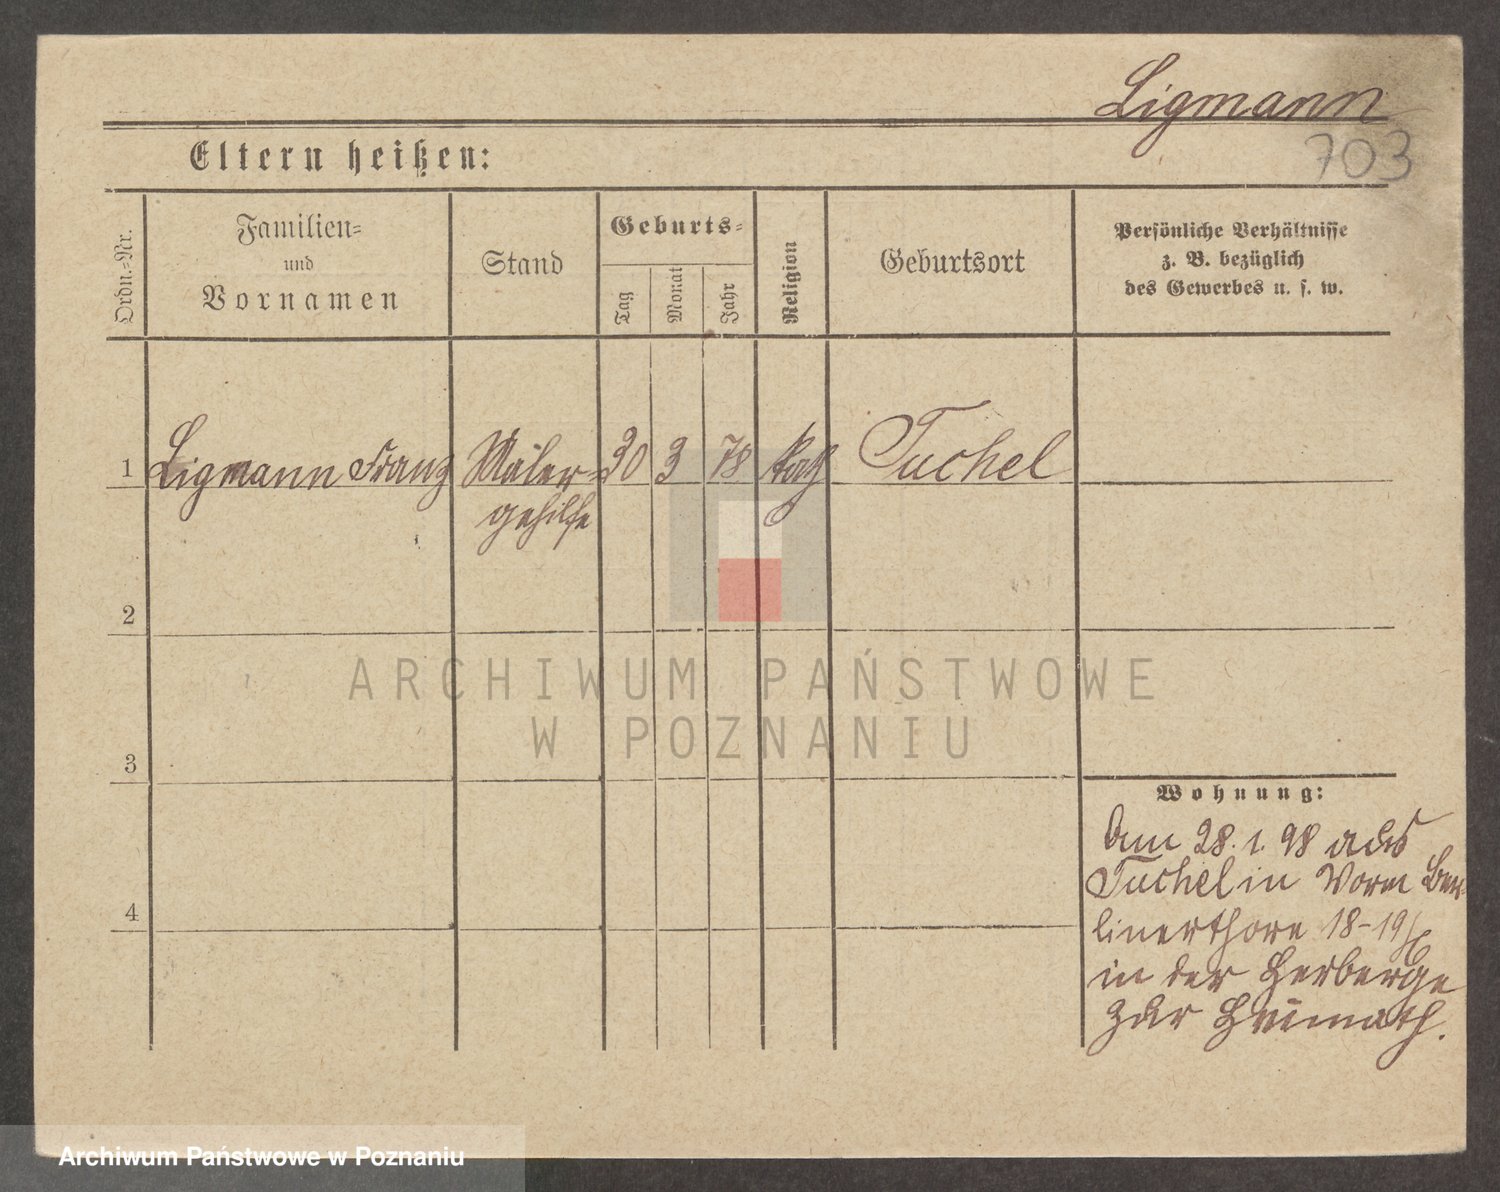 Ligmann
703
Eltern heißen:
Ordn.-Nr.
Familien-
und
Vornamen
Stand
Geburts-
Tag
Monat
Jahr
Religion
Geburtsort
Persönliche Verhältnisse
z. B. bezüglich
des Gewerbes u. s. w.
1 Ligmann Franz Maler- 30 3 78 kath Tuchel
gehilfe
2
3
4
Wohnung:
Am 28. 1. 98 aus
Tuchel in Vorm Ber-
linerthore 18-19/
in der Herberge
zur Heimath.
ARCHIWUM PAŃSTWOWE
W POZNANIU
Archiwum Państwowe w Poznaniu